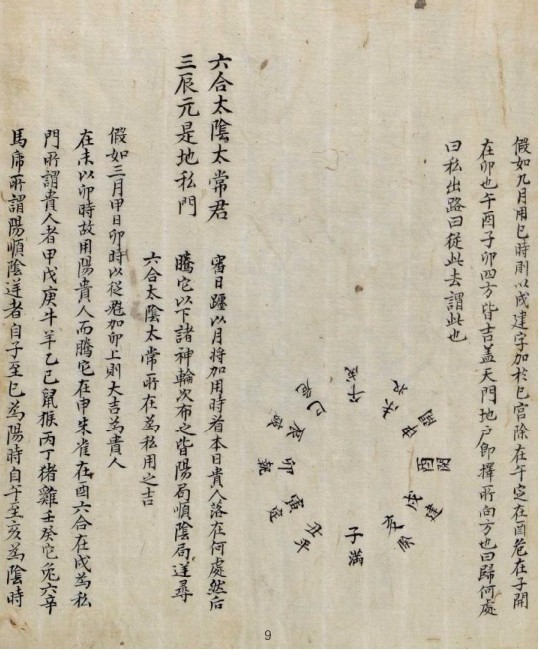 假如九月用巳時則以戌建字加於巳宮除在午定在酉危在子開
在卯也午酉子卯四方皆吉盖天門地户即擇所向方也曰歸何處
曰私出路曰從此去謂此也
午成
未收
申開
酉閉
戌建
亥除
子滿
丑平
寅定
卯執
辰破
巳危
六合太陰太常君
三辰元是地私門
審日躔以月將加用時看本日貴人落在何處然后
騰它以下諸神輪次布之皆陽局順陰局逆尋
六合太陰太常所在為私用之吉
假如三月甲日卯時以從魁加卯上則大吉為貴人
在未以卯時故用陽貴人而騰它在申朱雀在酉六合在戌為私
門所謂貴人者甲戊庚斗羊乙己鼠猴丙丁猪雞壬癸它兔六辛
馬席所謂陽順陰逆者自子至巳為陽時自午至亥為陰時
9